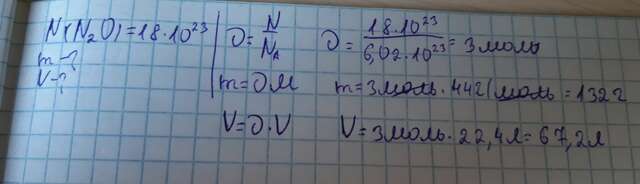 N(N₂O)=18·10²³
m-?
V-?
υ=N/Nₐ
m=υM
V=υ·V
υ=18·10²³/6,02·10²³=3моль
m=3моль·44г/моль=132г
V=3моль·22,4л=67,2л